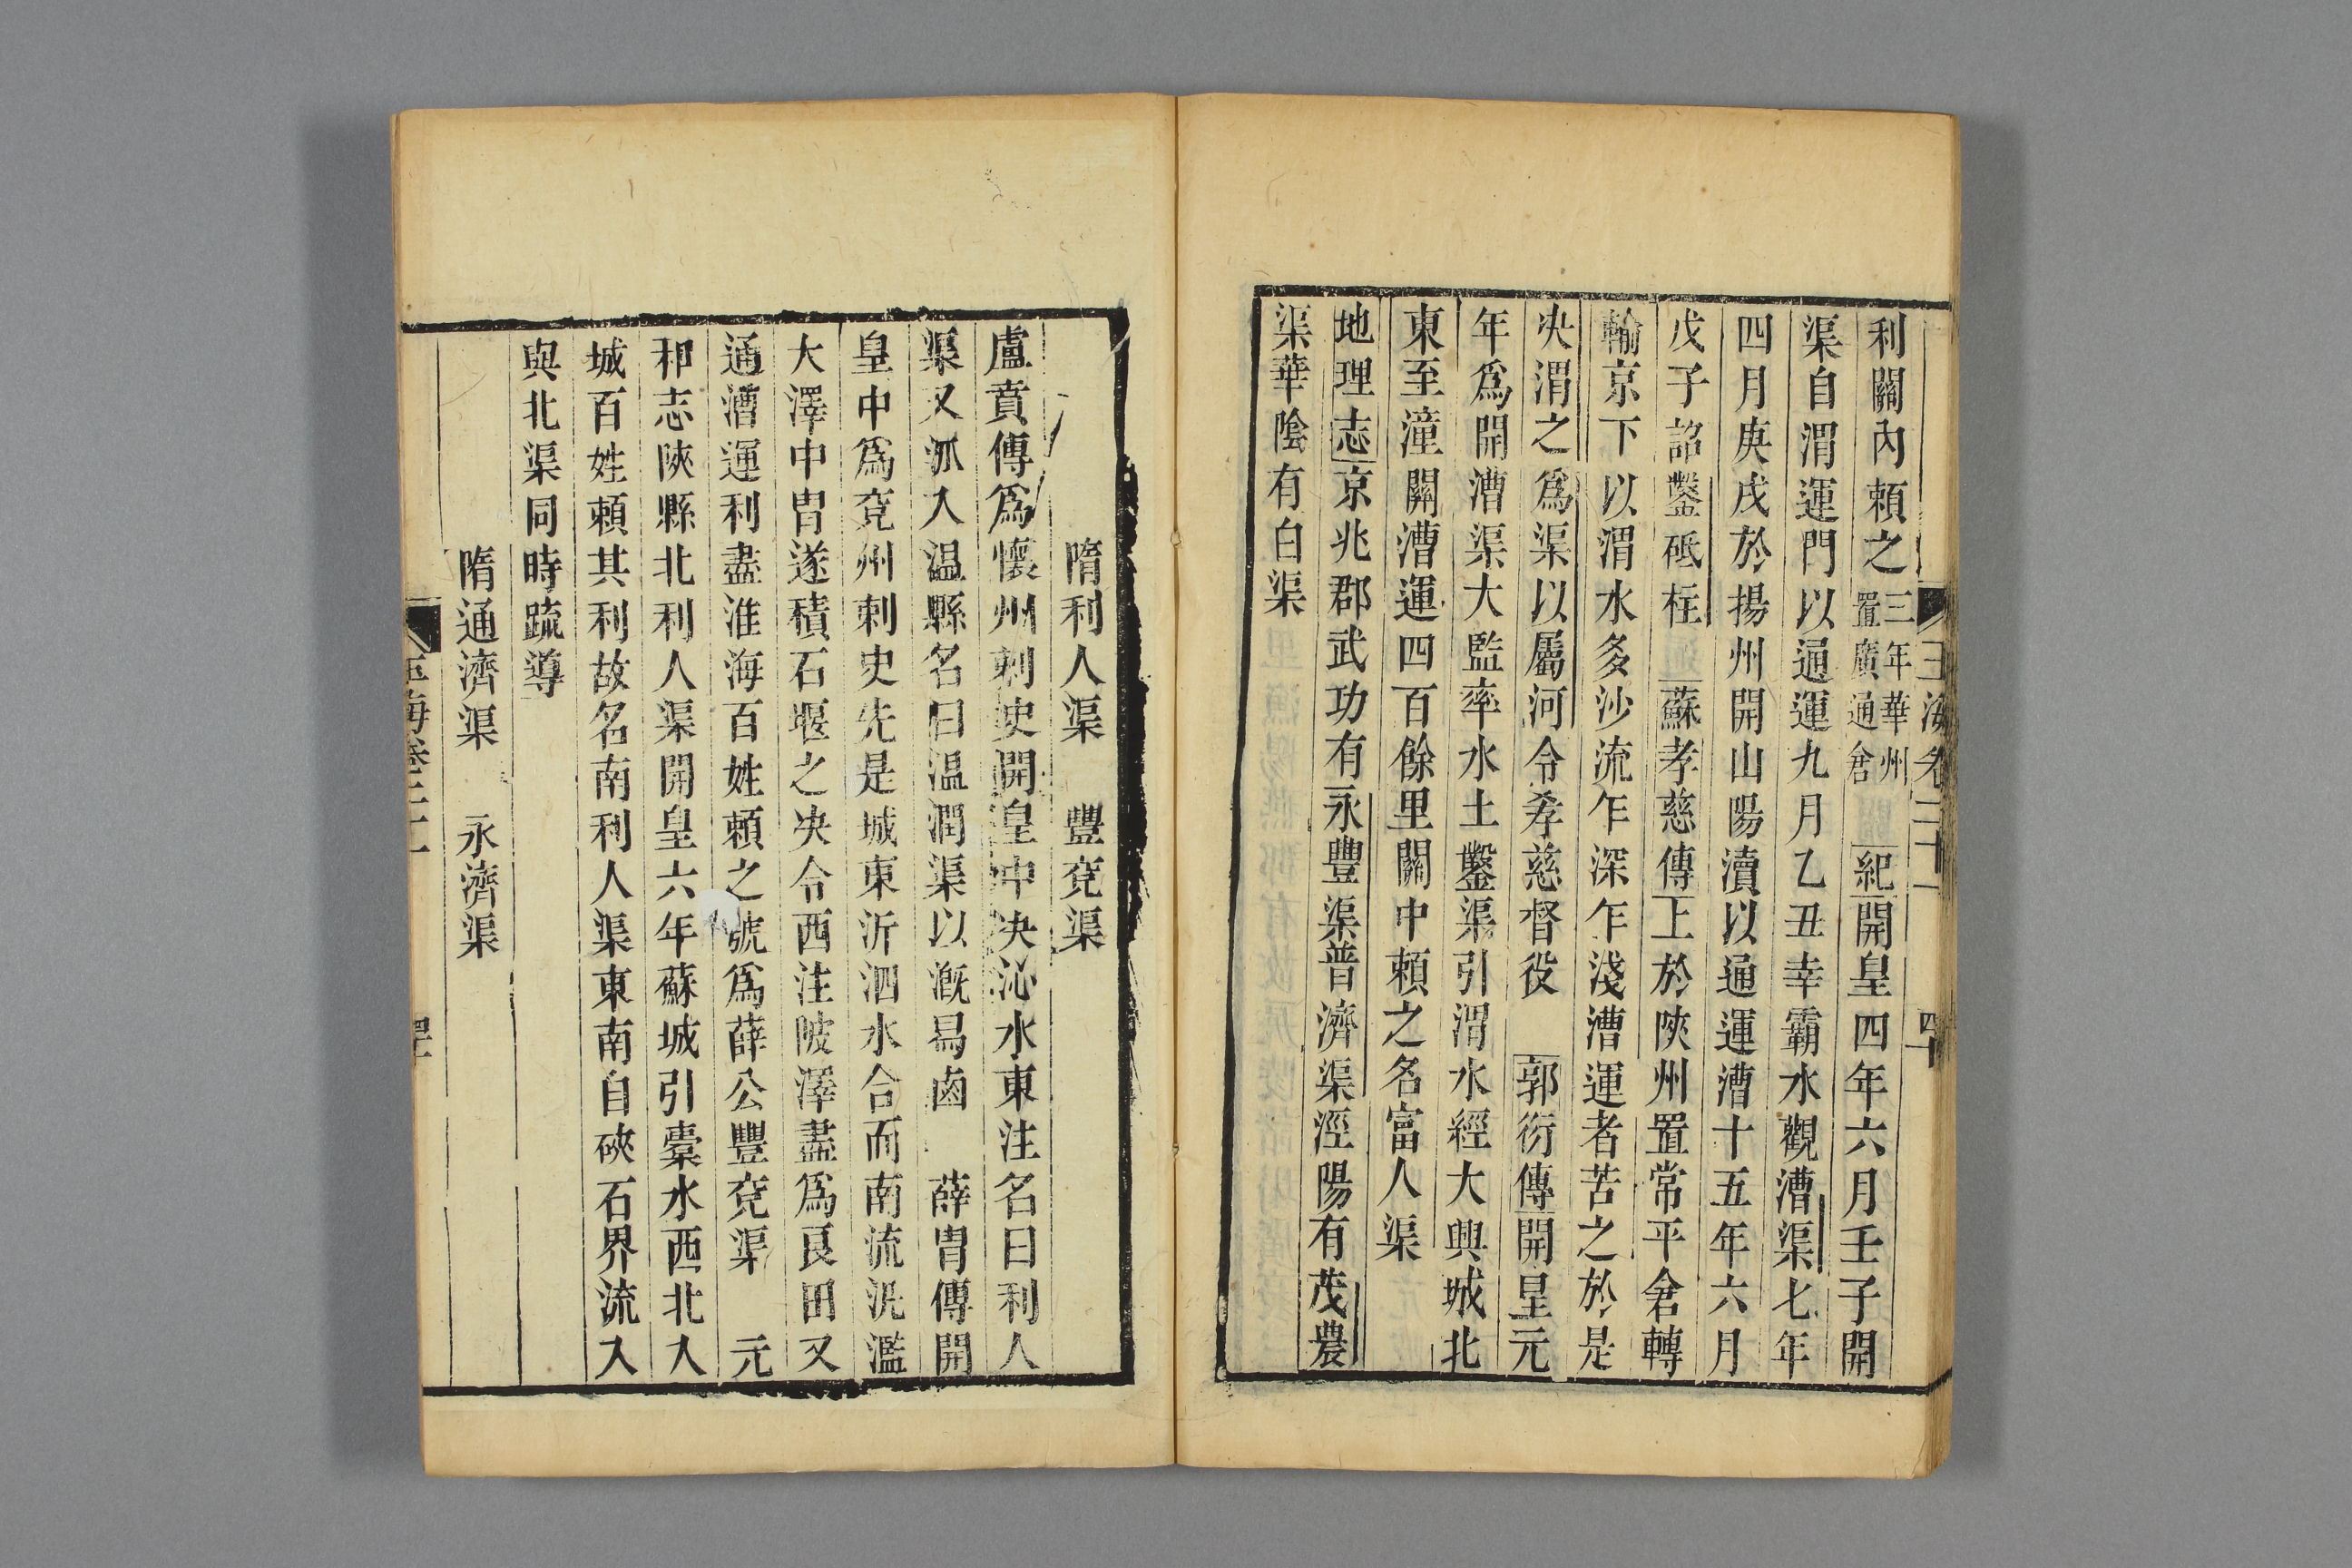 利關內頼之三年華州置廣通倉 紀開皇四年六月壬子開
渠自渭運門以通運九月乙丑幸霸水觀漕渠七年
四月庚戌於揚州開山陽瀆以通運漕十五年六月
戊子詔鑿砥柱 蘇孝慈傳上於陝州置常平倉轉
輸京下以渭水多沙流乍深乍淺漕運者苦之於是
决渭之爲渠以屬河令孝慈督役 郭衍傳開皇元
年爲開漕渠大監率水土鑿渠引渭水經大興城北
東至潼關漕運四百餘里關中頼之名富人渠
地理志京兆郡武功有永豐渠普濟渠涇陽有茂農
渠華陰有白渠
玉海卷二十一 四十
隋利人渠 豐兖渠
盧賁傳爲懷州刺史開皇中决沁水東注名曰利人
渠又派入温縣名曰温潤渠以漑舄鹵 薛胄傳開
皇中爲兖州刺史先是城東沂泗水合而南流泛濫
大澤中胄遂積石堰之决令西注陂澤盡爲良田又
通漕運利盡淮海百姓頼之號爲薛公豐兖渠 元
和志陝縣北利人渠開皇六年蘇城引橐水西北入
城百姓頼其利故名南利人渠東南自硤石界流入
與北渠同時疏導
隋通濟渠 永濟渠